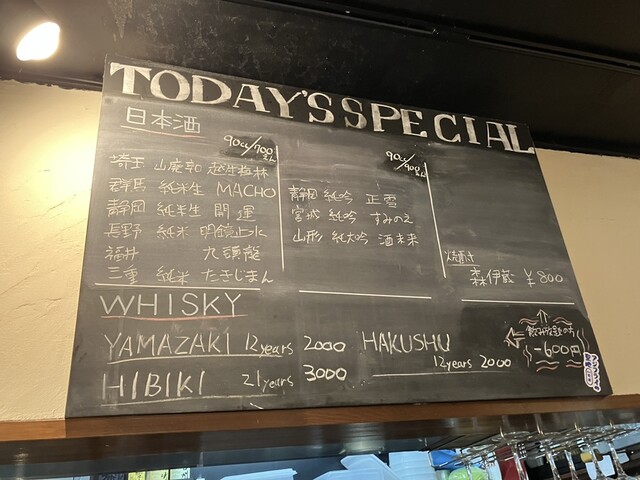 TODAY'S SPECIAL
日本酒
90cc/700えん
埼玉 山廃 越生梅林
群馬 純米生 MACHO
静岡 純米生 開運
長野 純米 明鏡止水
福井 九頭龍
三重 純米 たきじまん
90cc/900えん
静岡 純吟 正雪
宮城 純吟 すみのえ
山形 純大吟 酒未来
焼酎
森伊蔵 ¥800
WHISKY
YAMAZAKI 12years 2000
HIBIKI 21years 3000
HAKUSHU
12years 2000
飲み放題の方
-600円